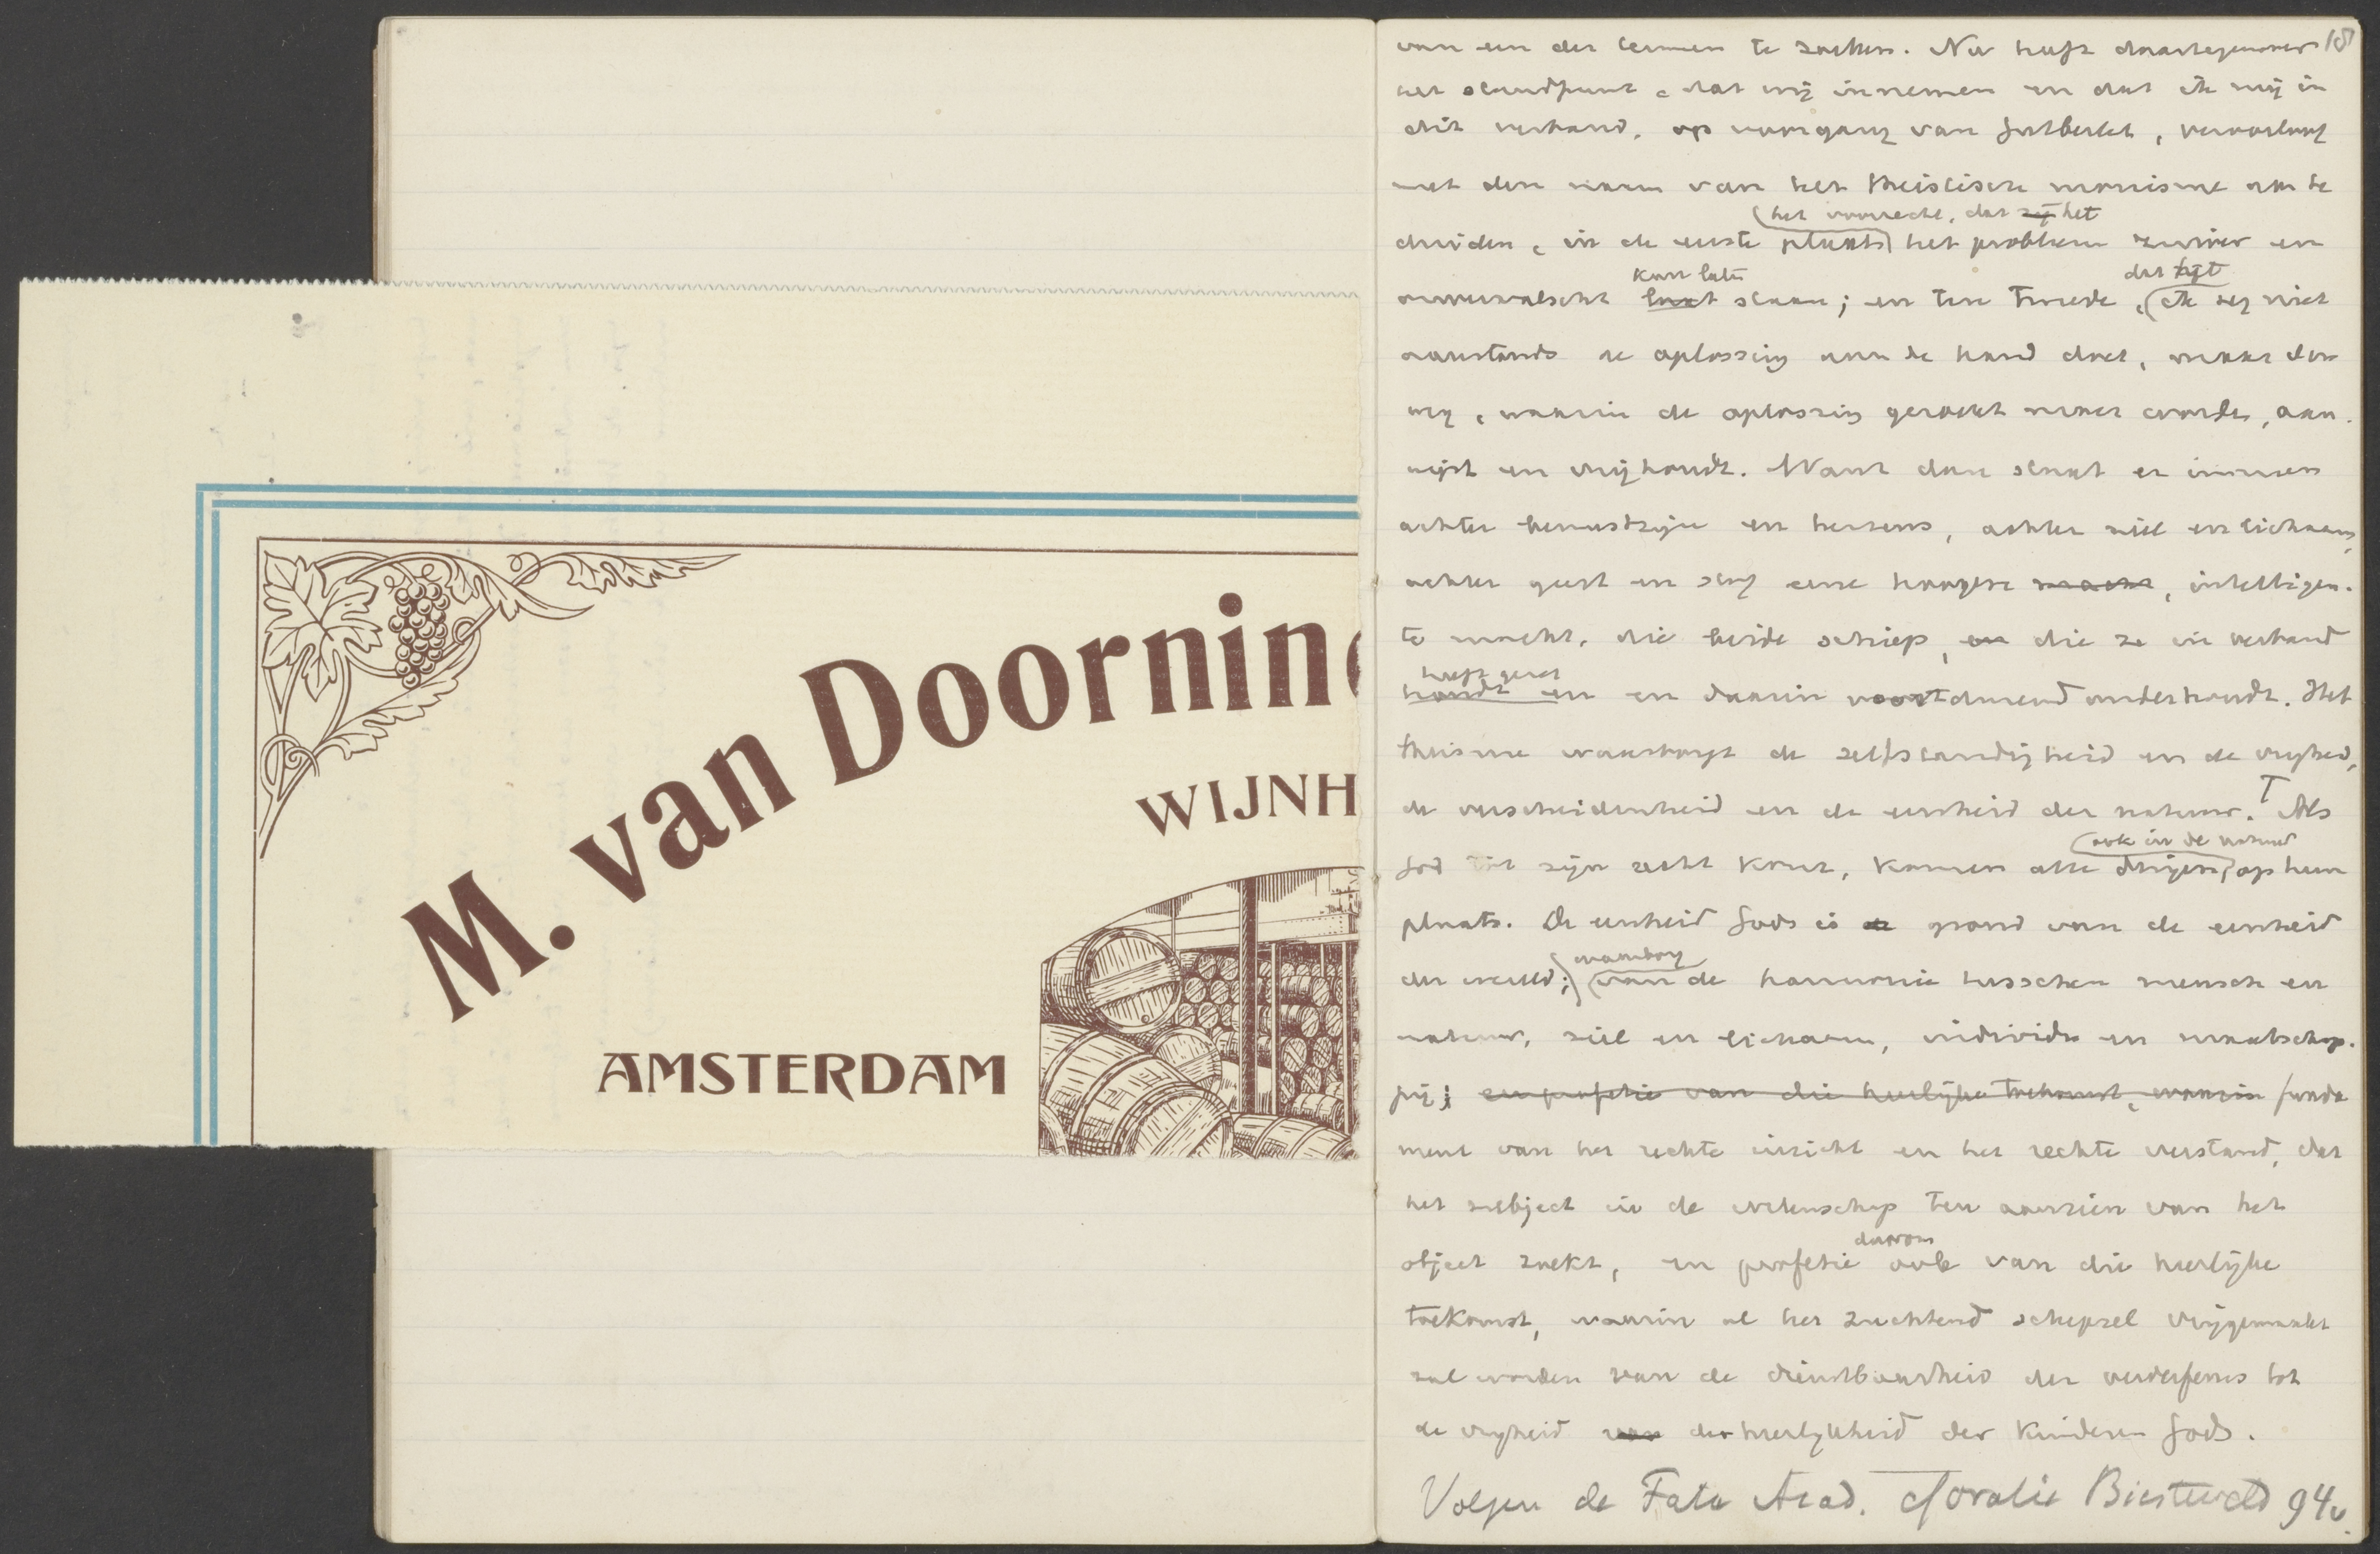 M. van Doorninc
WIJNH
AMSTERDAM
18
van een der termen te zoeken. Nu heeft daartegenover
het standpunt, dat wij innemen en dat ik mij in
dit verband, op voorgang van Gutberlet, veroorloof
met den naam van het theistische monisme aan te
het voorrecht, dat zij het
duiden, in de eerste plaats het probleem zuiver en
kan laten
dat zijt
onvervalscht laat staan; en ten tweede, ik zeg niet
aanstonds de oplossing aan de hand doet, maar den
weg, waarin de oplossing gezocht moet worden, aan-
wijst en vrijhoudt. Want dan staat er immers
achter bewustzijn en hersens, achter ziel en lichaam,
achter geest en stof eene hoogere macht, intelligen-
te macht, die beide schiep, en die ze in verband
heeft gezet
houdt en en daarin voortdurend onderhoudt. Het
theisme waarborgt de zelfstandigheid en de vrijheid,
de verscheidenheid en de eenheid der natuur. Als
ook in de natuur
God tot zijn recht komt, komen alle dingen op hun
plaats. De eenheid Gods is de grond van de eenheid
waarborg
der wereld; van de harmonie tusschen mensch en
natuur, ziel en lichaam, individu en maatschap-
pij; en profetie van die heerlijke toekomst, waarin funda
ment van het rechte inzicht en het rechte verstand, dat
het subject in de wetenschap ten aanzien van het
daarom
object zoekt, en profetie ook van die heerlijke
toekomst, waarin al het zuchtend schepsel vrijgemaakt
zal worden van de dienstbaarheid der verderfenis tot
de vrijheid van der heerlijkheid der kinderen Gods.
Volgen de Fata Acad. Oratie Biesterveld 94v.